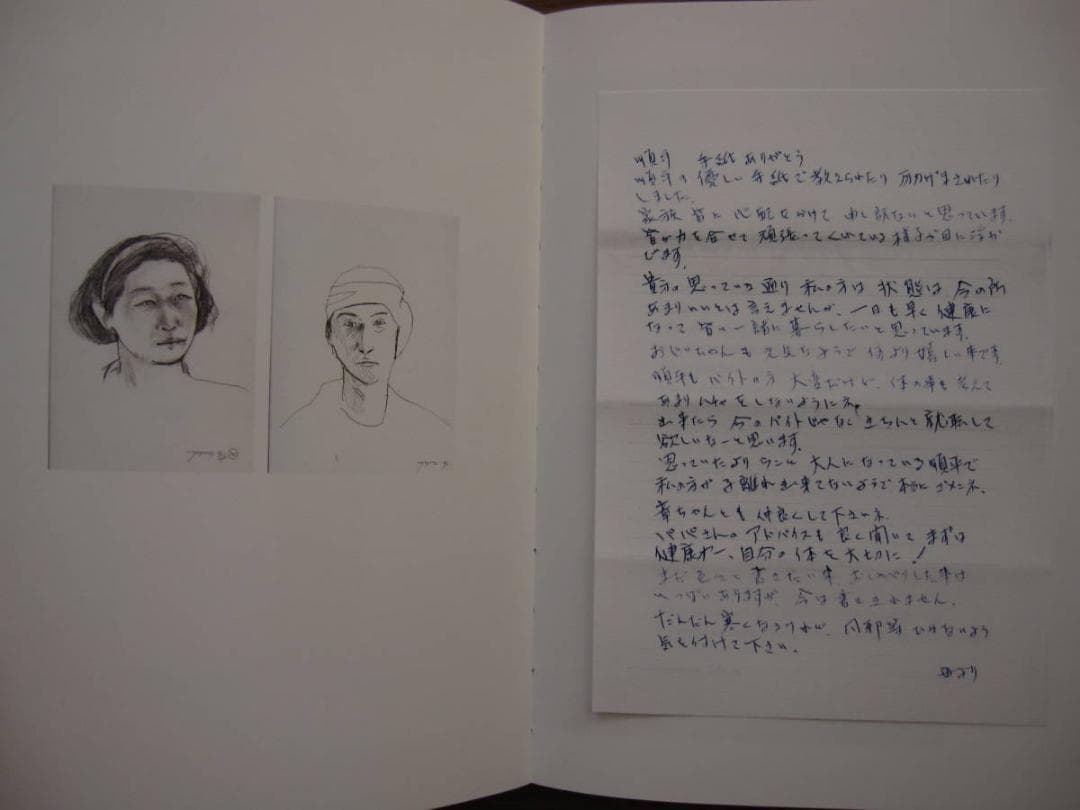 順平 手紙ありがとう
順平の優しい手紙で教えられたり 励まされたり
しました。
家族皆に心配をかけて 申し訳ないと思っています。
皆が力を合せて頑張ってくれている様子が目に浮か
びます。
貴方の思っている通り 私の方は 状態は 今の所
あまりいいとは言えませんが、一日も早く健康に
なって皆と一諸に暮らしたいと思っています。
おじいちゃんも元気なようで何より嬉しい事です。
順平もバイトの方 大変だけど、体の事も考えて
あまりムチャをしないようにネ。
出来たら 今のバイトじゃなく きちんと就職して
欲しいなーと思います。
思っていたより うんと 大人になっている順平で
私の方が子離れ出来てないようで 本当にゴメンネ。
ちゃんとも仲良くして下さいネ。
パパさんのアドバイスも良く聞いて まずは
健康が一、自分の体を大切に!
まだもっと書きたい事、おしゃべりしたい事は
いっぱいありますが、今は書ききれません。
だんだん寒くなるけれど、風邪等ひかないよう
気を付けて下さい。
母より